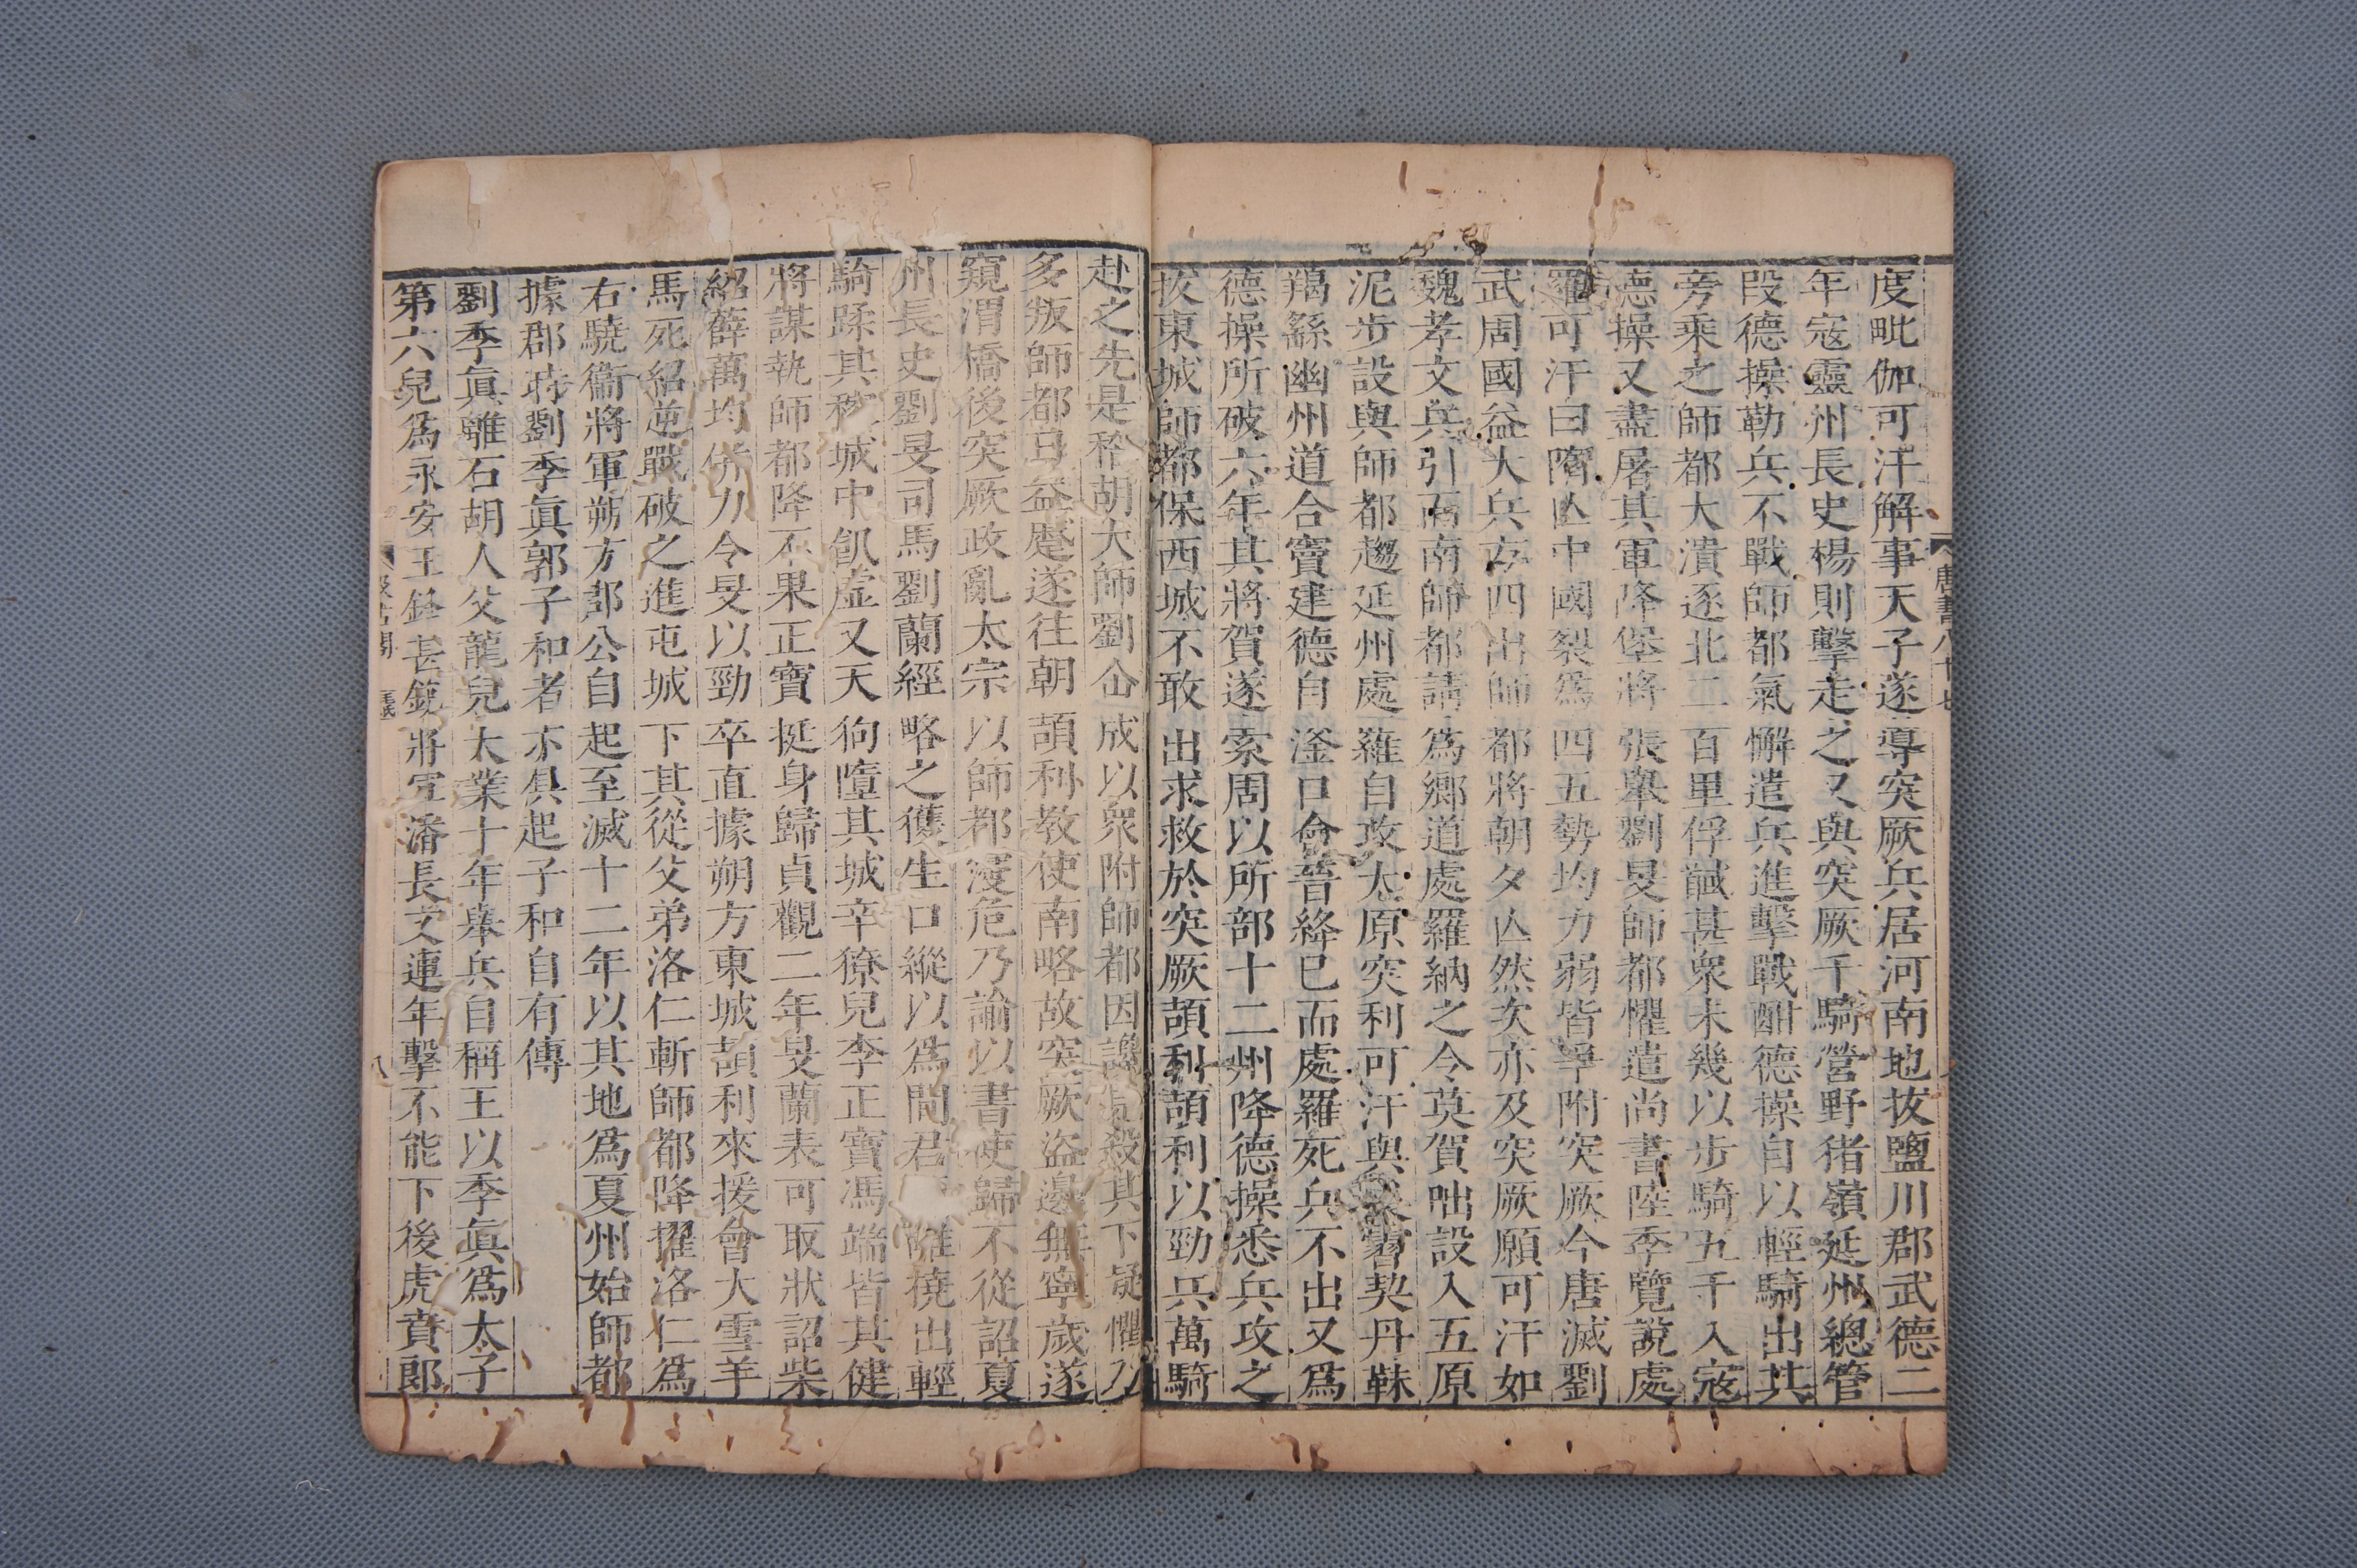 度毗伽可汗解事天子遂導突厥兵居河南地拔鹽川郡武德二
年寇靈州長史楊則擊走之又與突厥千騎營野猪嶺延州總管
段德操勒兵不戰師都氣懈遣兵進擊戰酣德操自以輕騎出其
旁乘之師都大潰逐北二百里俘馘甚衆未幾以步騎五千入寇
德操又盡屠其軍降堡將張舉劉旻師都懼遣尚書陸季覽說處
羅可汗曰隋亾中國裂爲四五勢均力弱皆爭附突厥今唐滅劉
武周國益大兵方四出師都將朝夕亾然次亦及突厥願可汗如
魏孝文兵引而南師都請爲鄉道處羅納之令莫賀咄設入五原
泥步設與師都趨延州處羅自攻太原突利可汗與奚霫契丹靺
羯繇幽州道合竇建德自滏口會晉絳已而處羅死兵不出又爲
德操所破六年其將賀遂索周以所部十二州降德操悉兵攻之
拔東城師都保西城不敢出求救於突厥頡利頡利以勁兵萬騎
赴之先是稽胡大師劉仚成以衆附師都因讒殺其下疑懼乃
多叛師都日益蹙遂往朝頡利教使南略故突厥盜邊無寧歲遂
窺渭橋後突厥政亂太宗以師都寖危乃諭以書使歸不從詔夏
州長史劉旻司馬劉蘭經略之獲生口縱以爲間君離撓出輕
騎蹂其稼城中飢虛又天狗墮其城辛獠兒李正寶馮端皆其健
將謀執師都降不果正寶挺身歸貞觀二年旻蘭表可取狀詔柴
紹薛萬均併力令旻以勁卒直據朔方東城頡利來援會大雪羊
馬死紹逆戰破之進屯城下其從父弟洛仁斬師都降擢洛仁爲
右驍衞將軍朔方郡公自起至滅十二年以其地爲夏州始師都
據郡時劉季眞郭子和者亦俱起子和自有傳
劉季眞離石胡人父龍兒大業十年舉兵自稱王以季眞爲太子
第六兒爲永安王將軍潘長文連年擊不能下後虎賁郎
唐書八十七
汲古閣
八